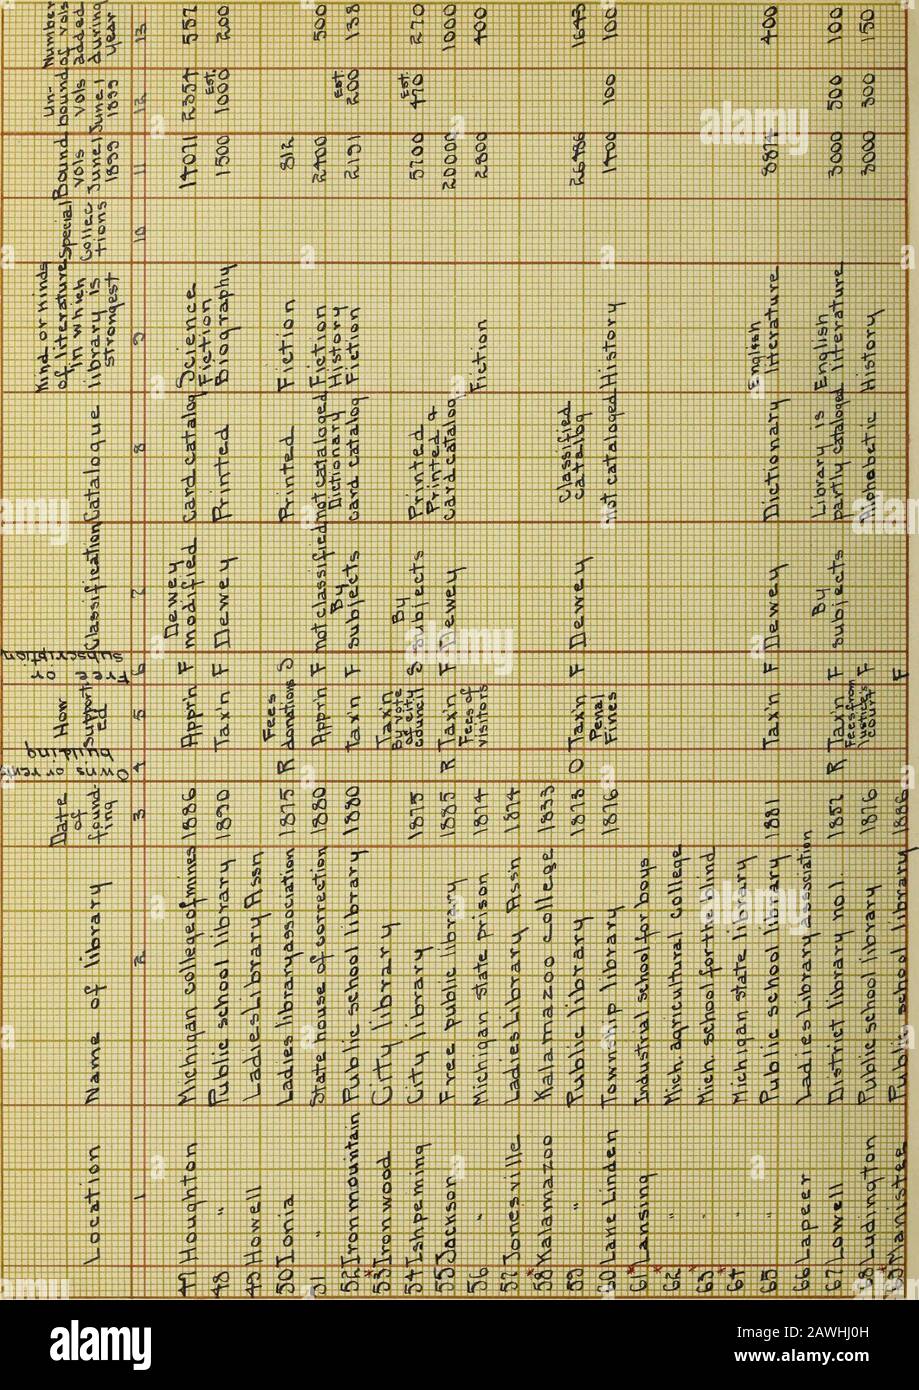 Location Name of library Date of found-ing Owns or rents building How Support-ed Free or subscription Classification Catalogue Kind or Kinds of literature in which library is strongest Special Collec-tions Bound vols June 1 1899 Un-bound vols June 1 1899 Number of vols added during year
1 2 3 4 5 6 7 8 9 10 11 12 13
47 Houghton Michigan college of mines 1886 Appr'n F Dewey modified Card catalog Science 14071 2354 557
48 " Public school library 1890 Tax'n F Dewey Printed Fiction Biography 1500 Est. 1000 200
49 Howell Ladies Library Ass'n
50 Ionia Ladies library association 1875 R Fees donations S Printed Fiction 812
51 " State house of correction 1880 Appr'n F not classified not cataloged Fiction 2400 500
52 Iron mountain Public school library 1880 Tax'n F By subjects Dictionary card catalog History Fiction 2191 Est. 200 138
53 Ironwood City library
54 Ishpeming City library 1875 Tax'n By vote of city council S By subjects Printed 5700 Est. 470 270
55 Jackson Free public library 1885 R Tax'n F Dewey Printed & card catalog 20000 1000
56 " Michigan state prison 1874 Fees of visitors Fiction 2800 400
57 Jonesville Ladies Library Ass'n 1874
58 Kalamazoo Kalamazoo college 1833
59 " Public library 1873 O Tax'n F Dewey Classified catalog 26486 1643
60 Lake Linden Township library 1876 Penal Fines not cataloged History 1400 100
61 Lansing Industrial school for boys
62 " Mich. agricultural college
63 " Mich. school for the blind
64 " Michigan state library
65 " Public school library 1881 Tax'n F Dewey Dictionary English literature 8874 400
66 Lapeer Ladies Library association
67 Lowell District library no.1. 1857 R Tax'n F By subjects Library is partly cataloged English literature 3000 500 100
68 Ludington Public school library 1876 Fees from justice's court F Alphabetic History 3000 300 150
69 Manistee Public school library 1886 F
alamy
Image ID: 2AWHJ0H
www.alamy.com